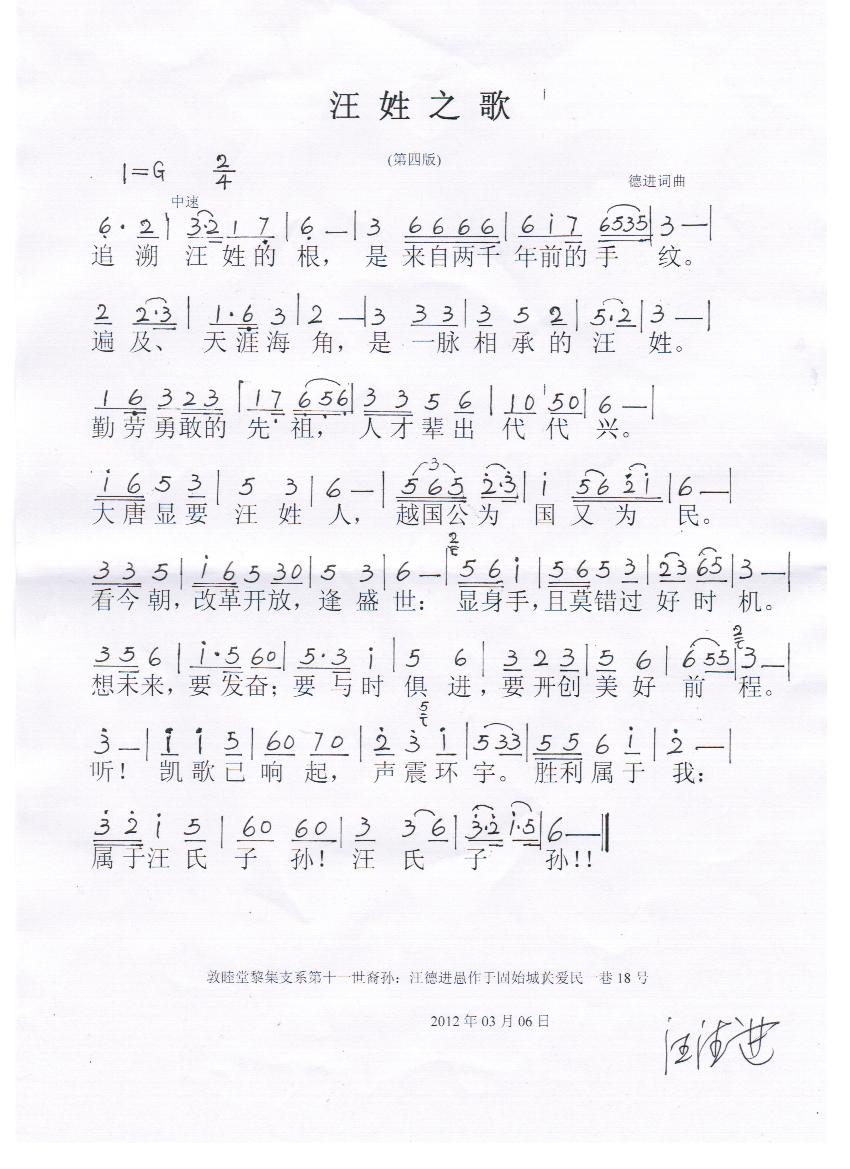 汪姓之歌
(第四版)
1=G 2/4
德进词曲
中速
6·2 | 3·2 1 7 | 6 — | 3 6 6 6 6 | 6 i 7 6535 | 3 — |
追溯汪姓的根，是来自两千年前的手纹。
2 2·3 | 1·6 3 | 2 — | 3 3 3 | 3 5 2 | 5·2 | 3 — |
遍及、天涯海角，是一脉相承的汪姓。
1 6 3 2 3 | 1 7 6 5 6 | 3 3 5 6 | 10 50 | 6 — |
勤劳勇敢的先祖，人才辈出代代兴。
i 6 5 3 | 5 3 | 6 — | 5 6 5 2·3 | i 5 6 2 i | 6 — |
大唐显要汪姓人，越国公为国又为民。
3 3 5 | i 6 5 30 | 5 3 | 6 — | 5 6 i | 5 6 5 3 | 23 65 | 3 — |
看今朝，改革开放，逢盛世：显身手，且莫错过好时机。
3 5 6 | i·5 60 | 5·3 i | 5 6 | 3 2 3 | 5 6 | 6 5 5 | 3 — |
想未来，要发奋；要与时俱进，要开创美好前程。
3 — | i i 5 | 60 70 | 2 3 i | 5 3 3 | 5 5 6 i | 2 — |
听！凯歌已响起，声震环宇。胜利属于我：
3·2 i 5 | 60 60 | 3 3 6 | 3·2 i·5 | 6 — ‖
属于汪氏子孙！汪氏子孙！！
敦睦堂黎集支系第十一世裔孙：汪德进愚作于固始城关爱民一巷18号
2012年03月06日
汪德进